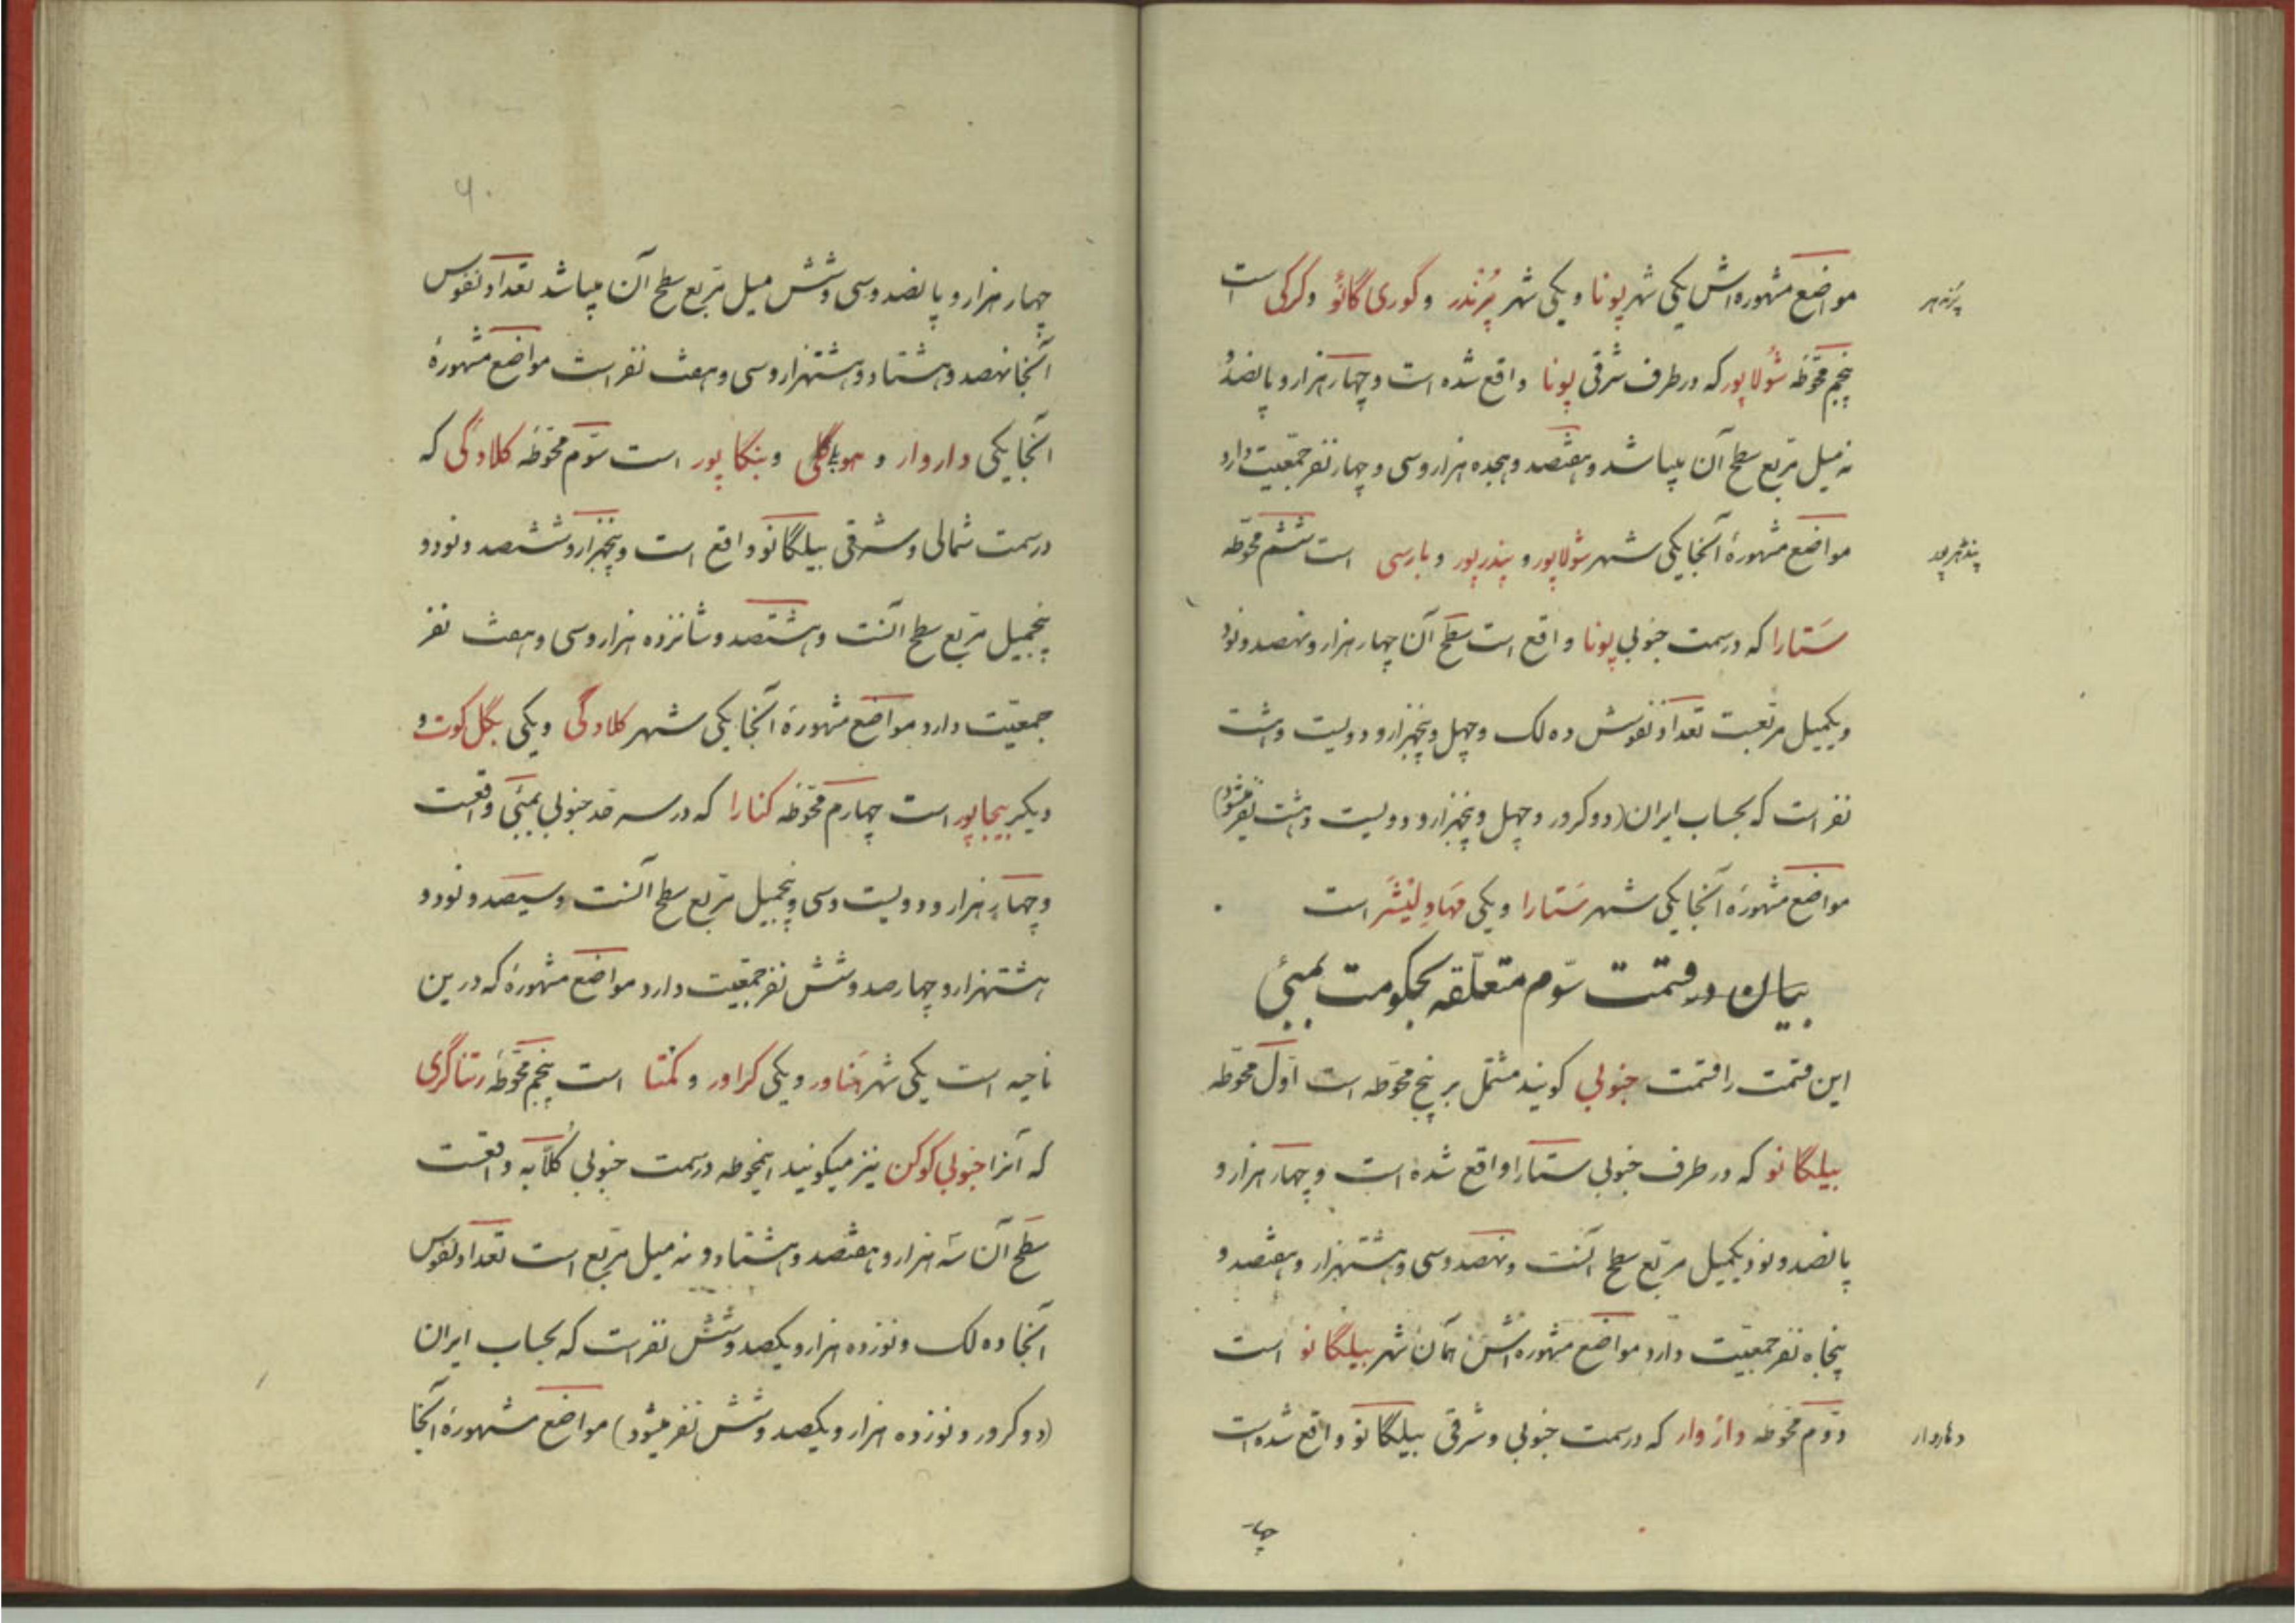 مواضع مشهوره‌اش یکی شهر پونا و یکی شهر پرندر و گوری گانو و کرکی است
پرندهر
پنجم محوّطه شولاپور که در طرف شرقی پونا واقع شده است و چهار هزار و پانصد و
نه میل مربع سطح آن میباشد و هفتصد و هجده هزار و سی و چهار نفر جمعیت دارد
مواضع مشهورهٔ آنجا یکی شهر شولاپور و پندرپور و بارسی است ششم محوّطه
پندهرپور
ستارا که در سمت جنوبی پونا واقع است سطح آن چهار هزار و نهصد و نود
و یکمیل مربعست تعداد نفوسش ده لک و چهل و پنجهزار و دویست و هشت
نفر است که بحساب ایران (دو کرور و چهل و پنجهزار و دویست و هشت نفر میشود)
مواضع مشهورهٔ آنجا یکی شهر ستارا و یکی مهاولیشر است
بیان در قسمت سوّم متعلّقه بحکومت بمبئی
این قسمت را قسمت جنوبی گویند مشتمل بر پنج محوّطه است اوّل محوّطه
بیلگانو که در طرف جنوبی ستارا واقع شده است و چهار هزار و
پانصد و نود یکمیل مربع سطح آنست و نهصد و سی و هشتهزار و هفتصد و
پنجاه نفر جمعیت دارد مواضع مشهوره‌اش همان شهر بیلگانو است
دوّم محوّطه داروار که در سمت جنوبی و شرقی بیلگانو واقع شده است
دهاروار
چهار
۶۰
چهار هزار و پانصد و سی و شش میل مربع سطح آن میباشد تعداد نفوس
آنجا نهصد و هشتاد و هشتهزار و سی و هفت نفر است مواضع مشهورهٔ
آنجا یکی داروار و هوبلی و بنگاپور است سوّم محوّطه کلادگی که
در سمت شمالی و شرقی بیلگانو واقع است و پنجهزار و ششصد و نود و
پنجمیل مربع سطح آنست و هشتصد و شانزده هزار و سی و هفت نفر
جمعیّت دارد مواضع مشهورهٔ آنجا یکی شهر کلادگی و یکی بگل کوت و
دیگر بیجاپور است چهارم محوّطه کنارا که در سرحد جنوبی بمبئی واقعست
و چهار هزار و دویست و سی و پنجمیل مربع سطح آنست و سیصد و نود و
هشتهزار و چهارصد و شش نفر جمعیت دارد مواضع مشهورهٔ که درین
ناحیه است یکی شهر هناور و یکی کراور و کمتا است پنجم محوّطه رتناگری
که آنرا جنوبی کوکن نیز میگویند اینمحوطه در سمت جنوبی کلابه واقعست
سطح آن سه هزار و هفتصد و هشتاد و نه میل مربع است تعداد نفوس
آنجا ده لک و نوزده هزار و یکصد و شش نفر است که بحساب ایران
(دو کرور و نوزده هزار و یکصد و شش نفر میشود) مواضع مشهورهٔ آنجا